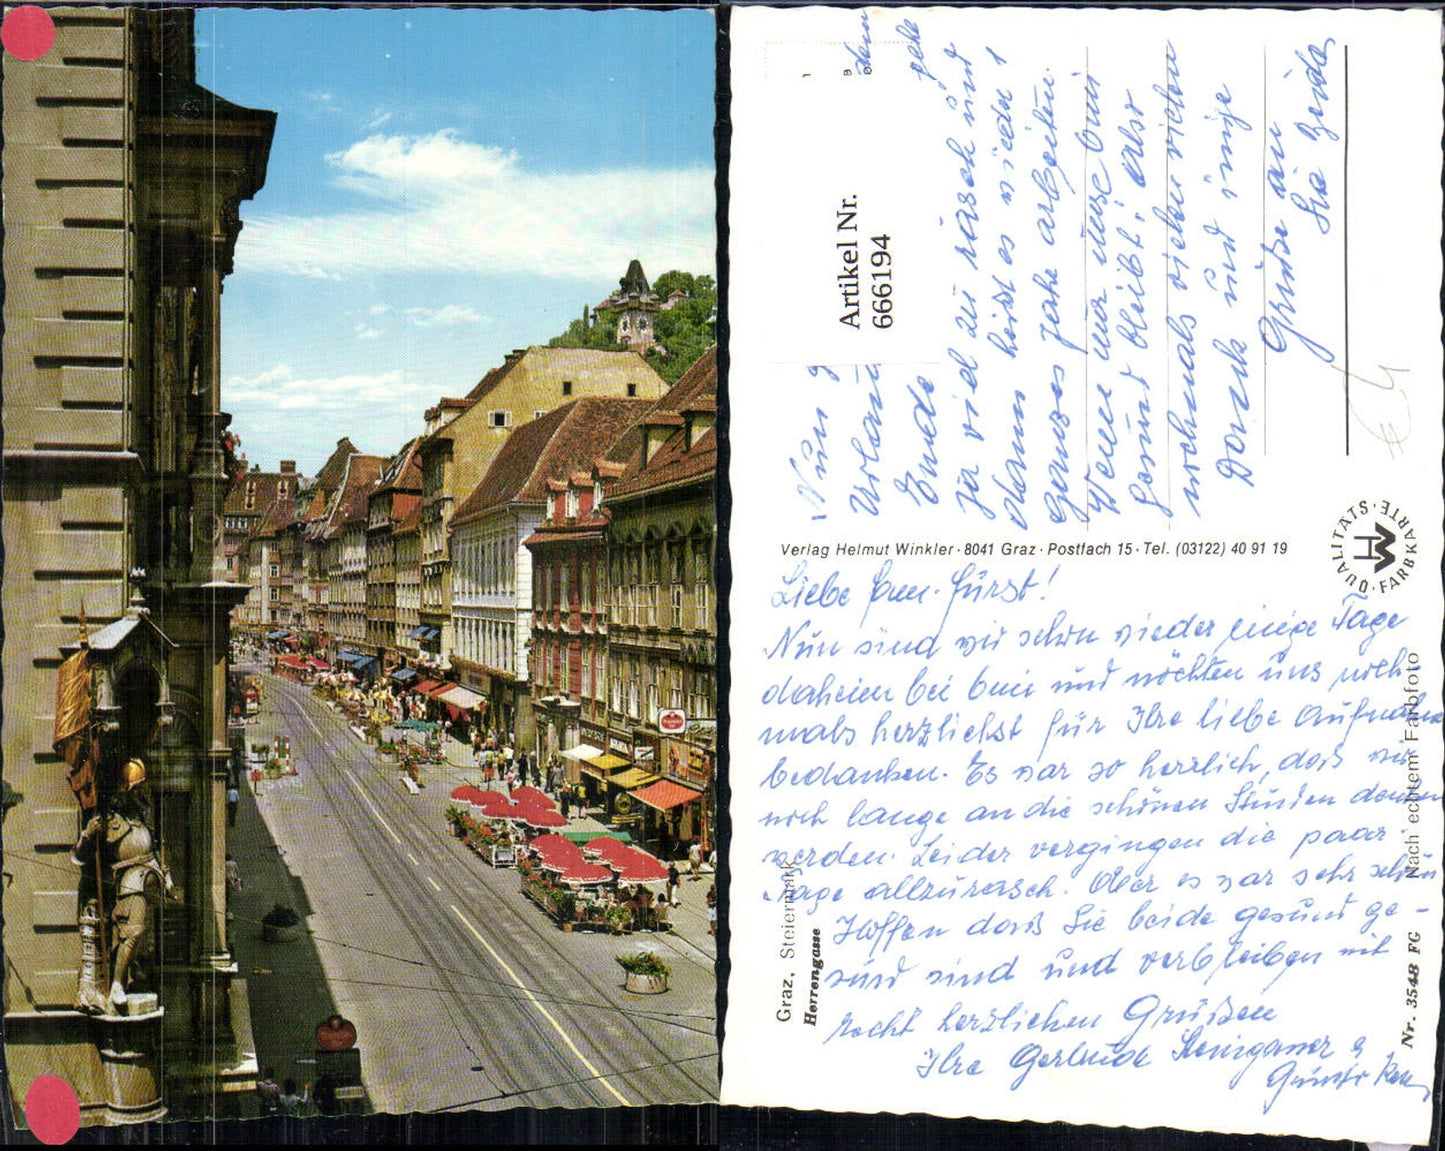 Artikel Nr.
666194
Nun
Urlau
Ende
ja viel zu rasch und
dann heißt es wieder 1
ganzes Jahr arbeiten.
Wenn nur unser
gesund bleibt! Also
nochmals vielen vielen
Dank und innige
Grüße an
Sie beide
Verlag Helmut Winkler · 8041 Graz · Postfach 15 · Tel. (03122) 40 91 19
QUALITÄTS · FARBKARTE
HW
Liebe Fam. Fürst!
Nun sind wir schon wieder einige Tage
daheim bei und möchten uns noch
mals herzlichst für Ihre liebe Aufnahme
bedanken. Es war so herzlich, daß wir
noch lange an die schönen Stunden denken
werden. Leider vergingen die paar
Tage allzurasch. Aber es war sehr schön
Hoffen daß Sie beide gesund ge-
sund sind und verbleiben mit
recht herzlichen Grüßen
Ihre Gerlinde
Graz, Steiermark
Herrengasse
Nr. 3548 FG Nach echtem Farbfoto